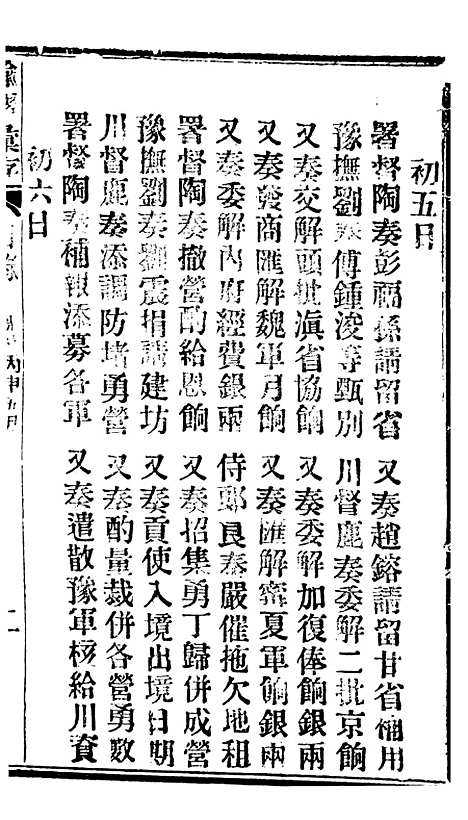 初五日
署督陶奏彭福孫請留省　又奏趙鎔請留甘省補用
豫撫劉奏傅鍾浚等甄別　川督鹿奏委解二批京餉
又奏交解頭批滇省協餉　又奏委解加復俸餉銀兩
又奏發商匯解魏軍月餉　又奏匯解甯夏軍餉銀兩
又奏委解內府經費銀兩　侍郎良奏嚴催拖欠地租
署督陶奏撤營酌給恩餉　又奏招集勇丁歸併成營
豫撫劉奏劉震捐請建坊　又奏貢使入境出境日期
川督鹿奏添調防堵勇營　又奏酌量裁併各營勇數
署督陶奏補報添募各軍　又奏遣散豫軍核給川資
初六日
諭摺彙存　目錄　丙申五月　二